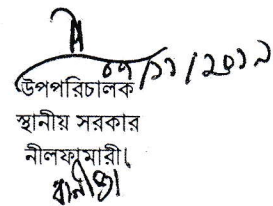 ০৭/১১/২০১৯
উপপরিচালক
স্থানীয় সরকার
নীলফামারী।